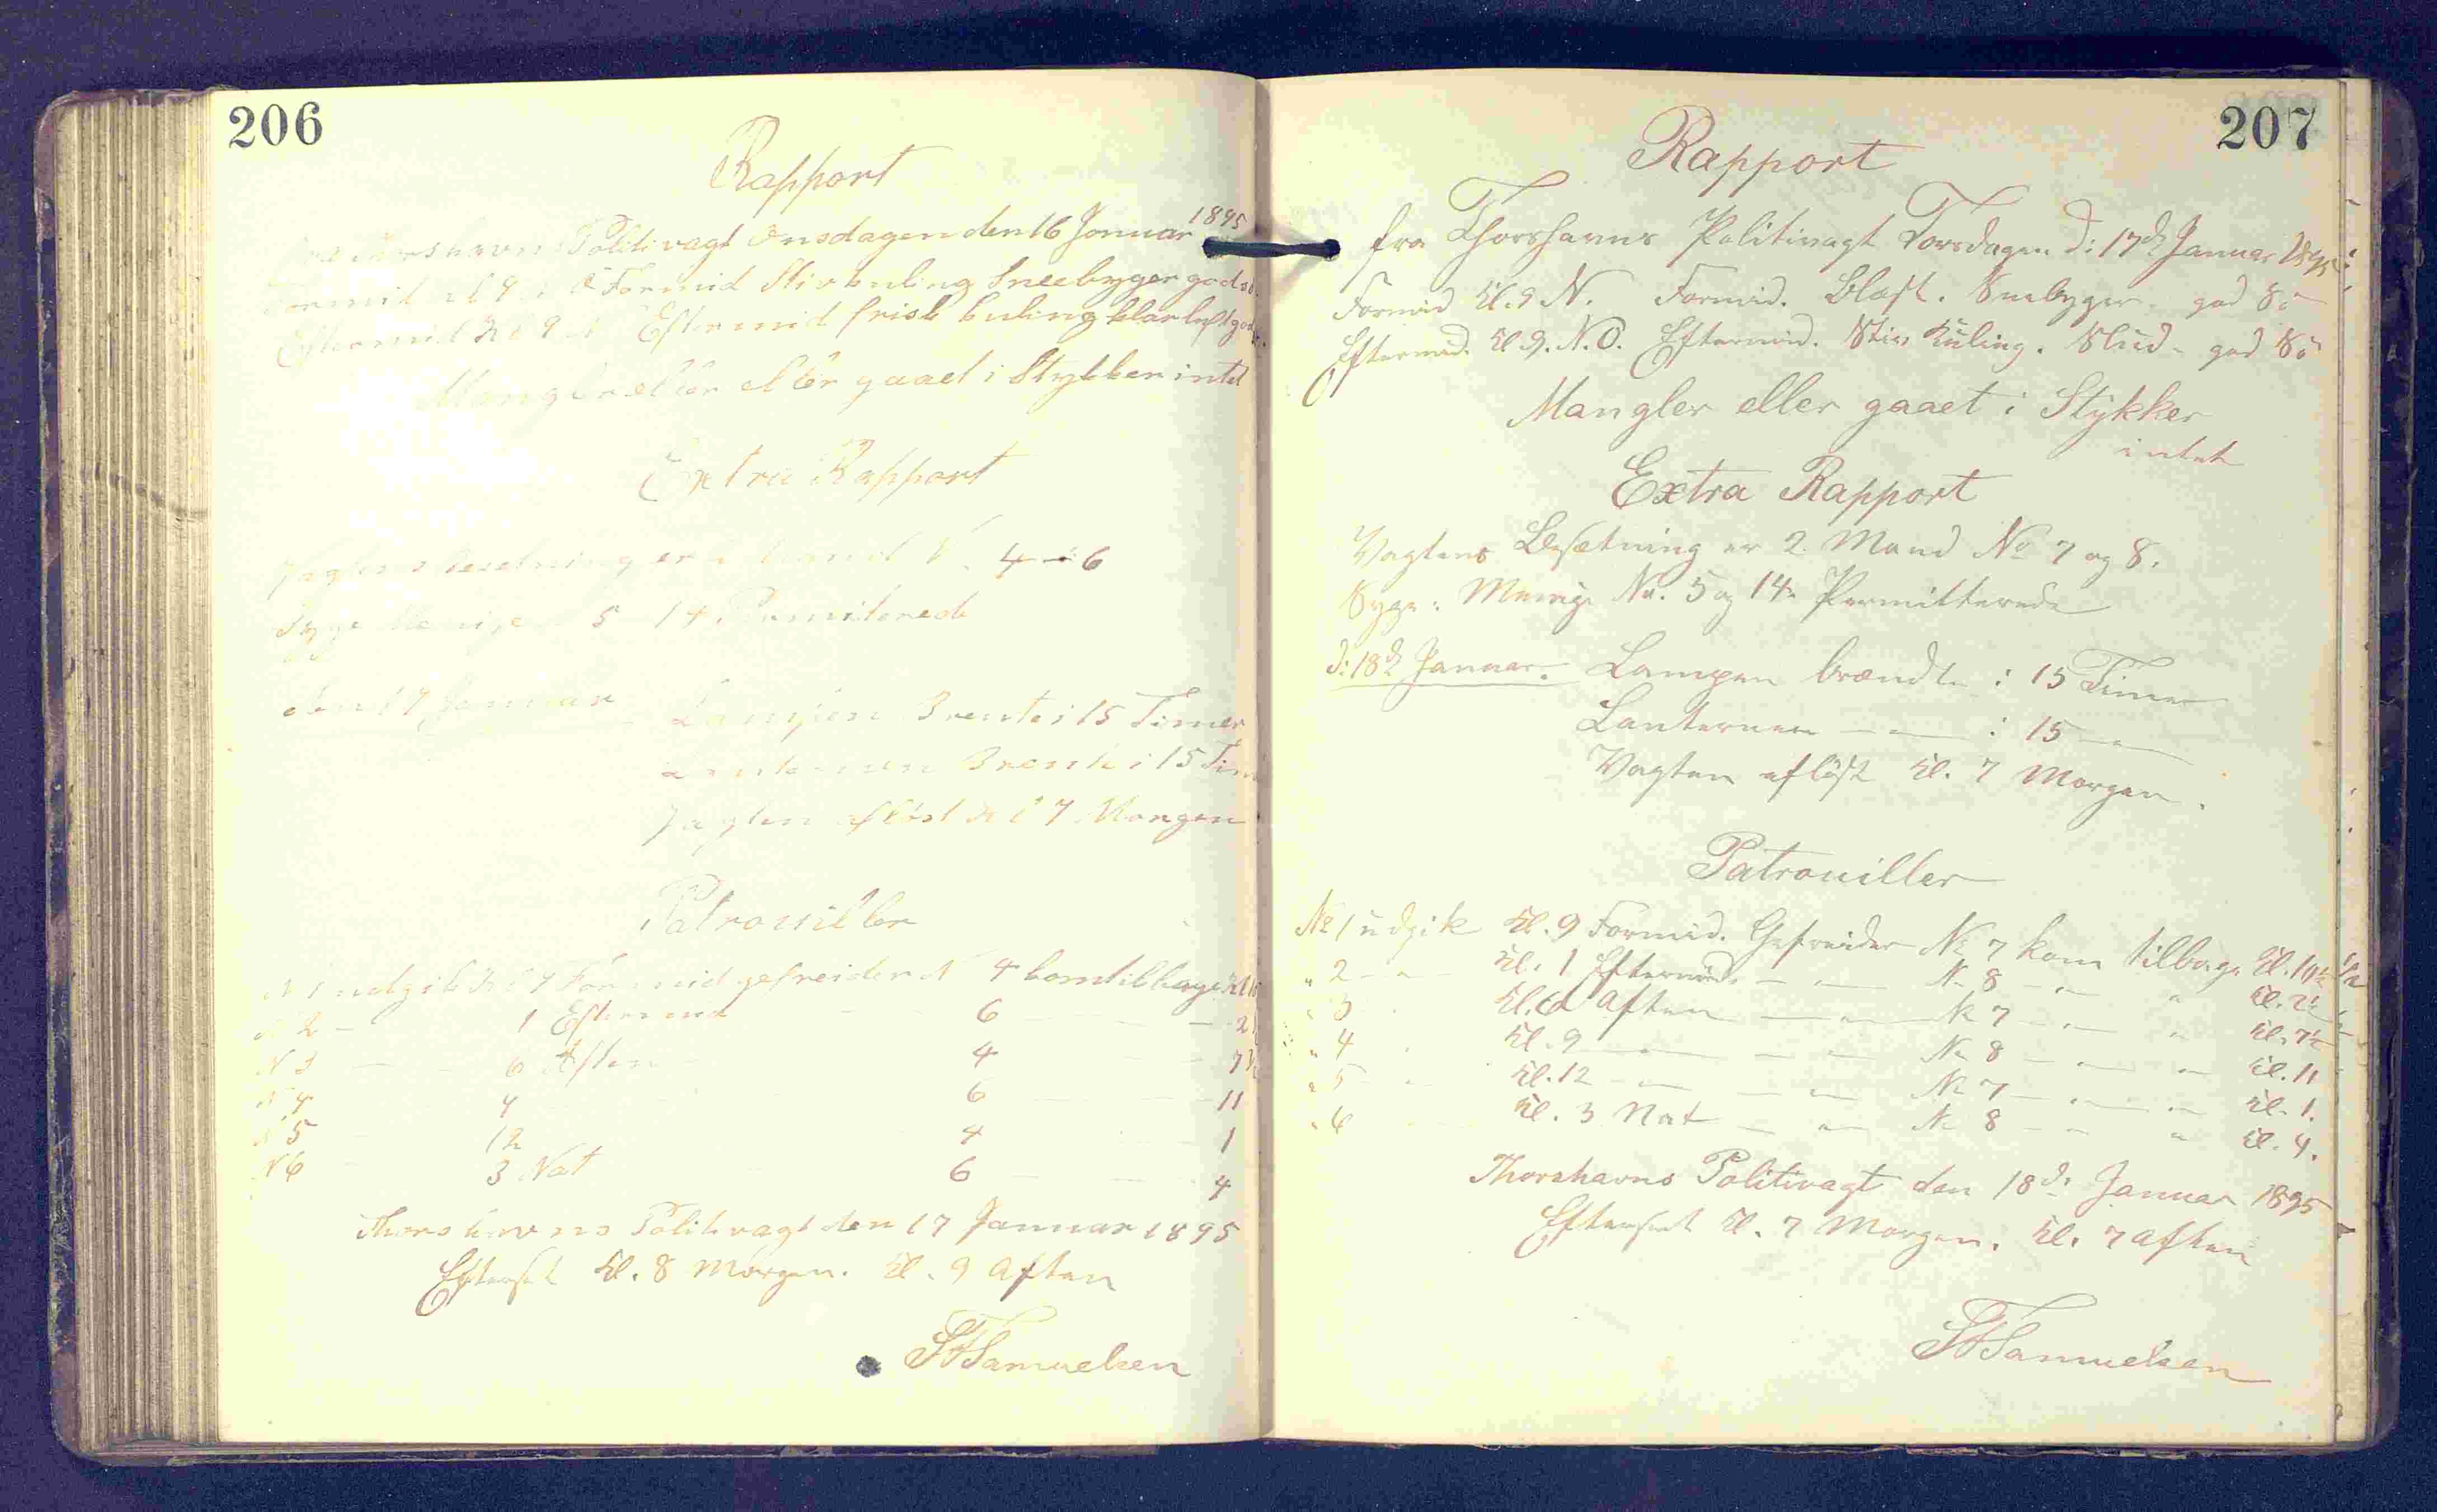 206
Rapport
fra Thorshavns Politivagt Onsdagen den 16 Januar 1895
Formid kl 9 Formid Stiv kuling Sneebyger god sö
Eftermid Kl 9 Eftermid frisk kuling klar luft god
Mangler eller gaaet i Stykker intet
Extra Rapport
Vagtens besetning er Mand N. 4 6
Syge Menige 5 14. Permiterede
den 17 Januar Lampen Brente i 15 Timer
Lanternen Brente i 15 Tim
Vagten aflöst Kl 7 Morgen
Patrouiller
N 1 udgik Kl 9 Formid gefreider N 4 kom tilbage Kl
N 2 — 1 Eftermid 6 — 2
N 3 — 6 Aften 4 7½
N 4 9 6 — 11
N 5 12 4 1
N 6 3 Nat 6 4
Thorshavns Politivagt den 17 Januar 1895
Efterset Kl. 8 Morgen. Kl. 9 Aften
Samuelsen
207
Rapport
fra Thorshavns Politivagt Torsdagen d: 17de Januar 1895
Formid Kl. 9 N. Formid. Blæst. Snebyger. god Sö
Eftermid. Kl. 9. N.O. Eftermid. Stiv Kuling. Slud. god Sö
Mangler eller gaaet i Stykker
intet
Extra Rapport
Vagtens Besætning er 2. Mand No 7 og 8.
Syge: Menige No. 5 og 14. Permitterede
d: 18de Januar. Lampen brændte : 15 Timer
Lanternen — " — : 15 — " —
Vagten aflöst Kl. 7 Morgen.
Patrouiller
No 1 udgik Kl. 9 Formid. Gefreider No 7 kom tilbage Kl. 10½
" 2 — " — Kl. 1 Eftermid. — " — No 8 — " — " Kl. 2½
" 3 Kl. 6 Aften — " — No 7 — " — " Kl. 7½
" 4 Kl. 9 — " — — " — No 8 — " — " Kl. 11
" 5 Kl. 12 — " — — " — No 7 — " — " Kl. 1.
" 6 Kl. 3 Nat — " — No 8 — " — " Kl. 4.
Thorshavns Politivagt den 18de Januar 1895
Efterset Kl. 7 Morgen. Kl. 7 Aften
Samuelsen